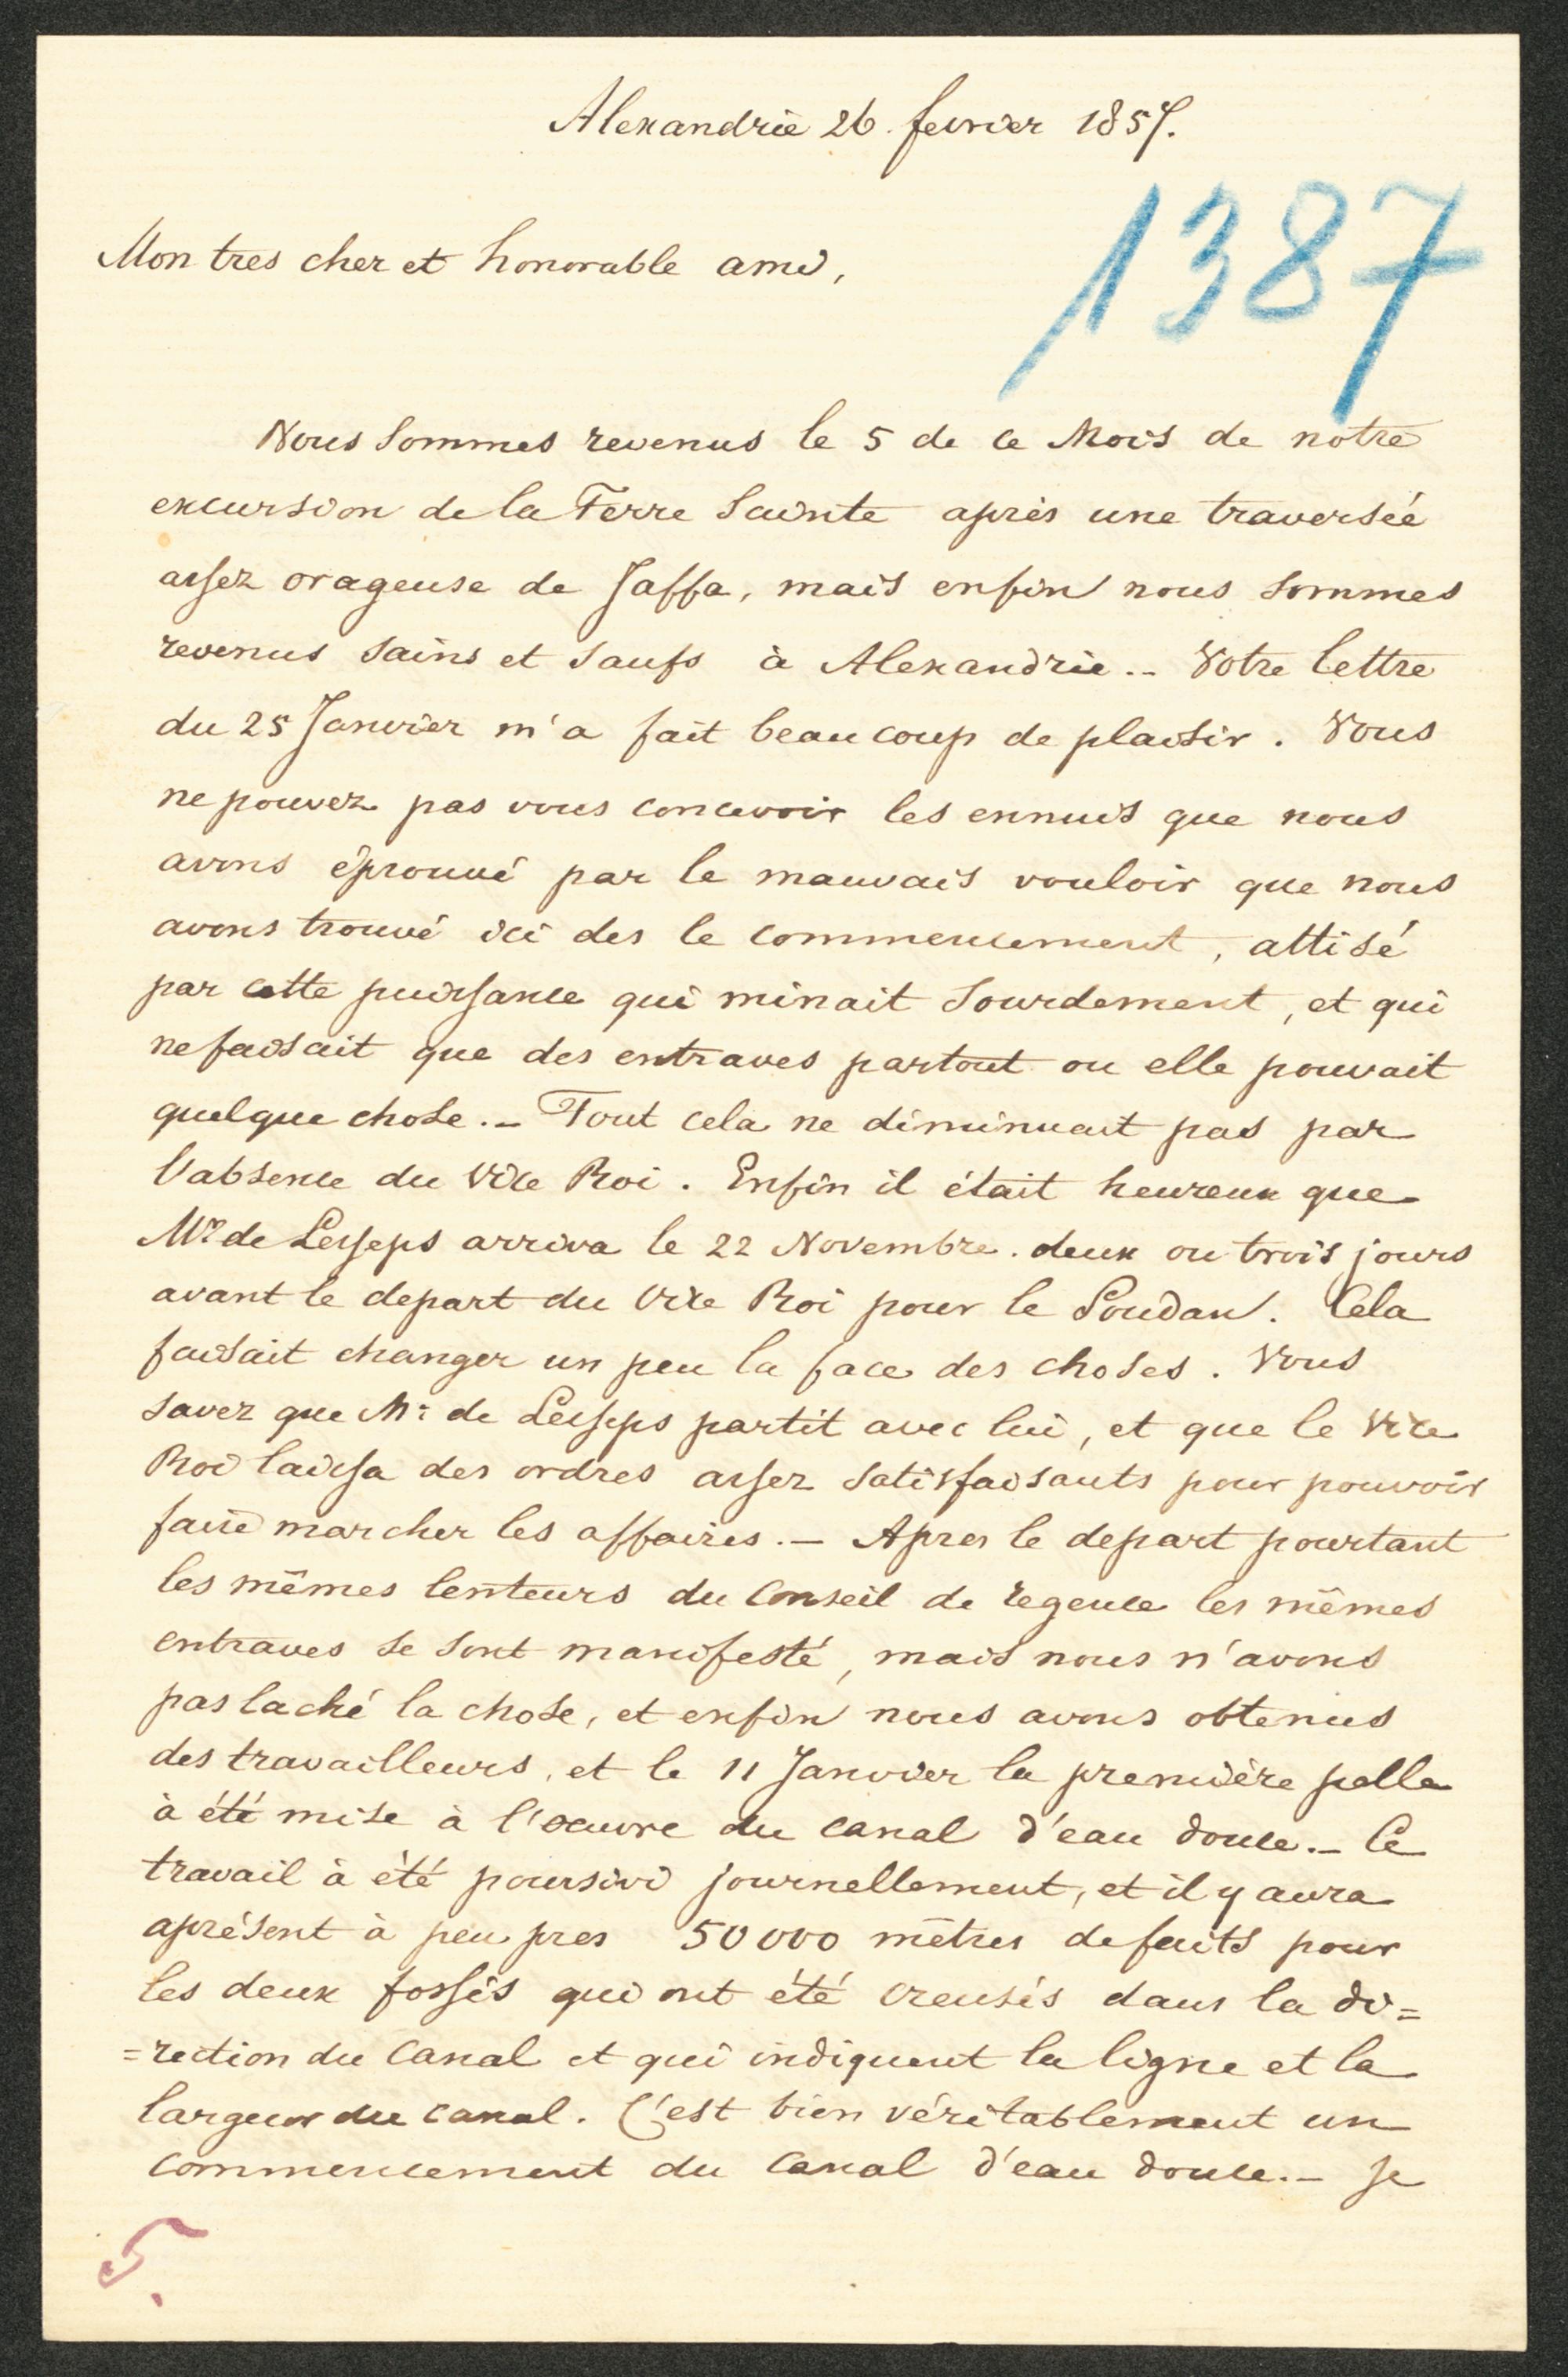 Alexandrie 26. fevrier 1857.
1387
Mon tres cher et honorable ami,
Nous sommes revenus le 5 de ce Mois de notre
excursion de la Terre Sainte après une traversée
assez orageuse de Jaffa, mais enfin nous sommes
revenus sains et saufs à Alexandrie.- Votre lettre
du 25 Janvier m'a fait beaucoup de plaisir. Vous
ne pouvez pas vous concevoir les ennuis que nous
avons éprouvé par le mauvais vouloir que nous
avons trouvé ici des le commencement, attisé
par cette puissance qui minait sourdement, et qui
ne faisait que des entraves partout ou elle pouvait
quelque chose.- Tout cela ne diminuait pas par
l'absence du Vice Roi. Enfin il était heureux que
Mr de Lesseps arriva le 22 Novembre. deux ou trois jours
avant le depart du Vice Roi pour le Soudan. Cela
faisait changer un peu la face des choses. Vous
savez que Mr de Lesseps partit avec lui, et que le Vice
Roi laissa des ordres assez satisfaisants pour pouvoir
faire marcher les affaires.- Apres le depart pourtant
les mêmes lenteurs du Conseil de regence les mêmes
entraves se sont manifesté, mais nous n'avons
pas laché la chose, et enfin nous avons obtenus
des travailleurs, et le 11 Janvier la première pelle
à été mise à l'oeuvre du canal d'eau douce.- Ce
travail à été poursivi journellement, et il y aura
aprésent à peu pres 50000 mètres de faits pour
les deux fossés qui ont été creusés dans la di=
=rection du Canal et qui indiquent la ligne et la
largeur du canal. C'est bien véritablement un
commencement du Canal d'eau douce.- Je
5.